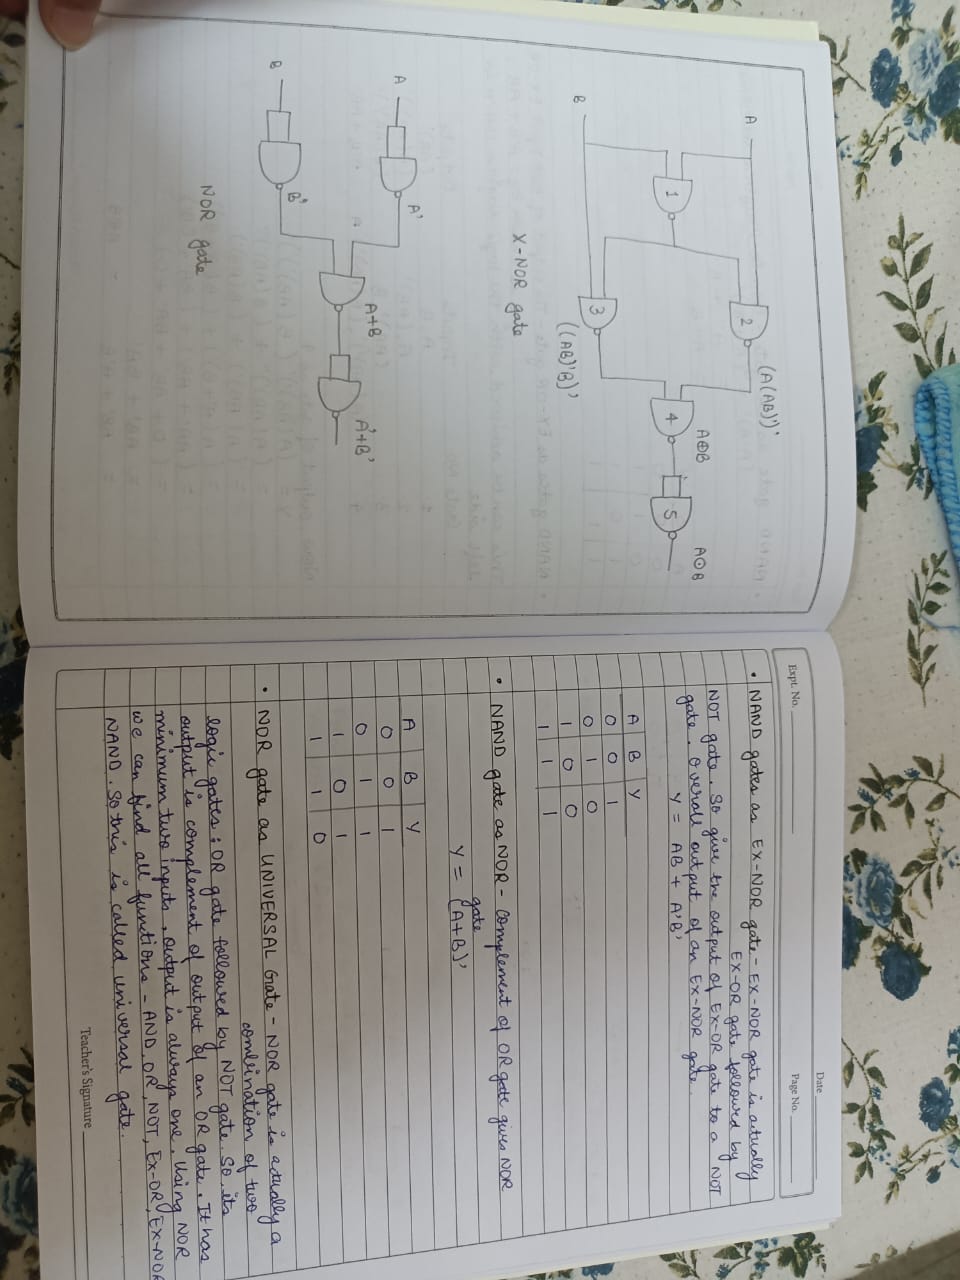 A
B
1
2
(A(AB)')'
3
((AB)'B)'
A⊕B
4
5
A⊙B
X-NOR gate
A
A'
B
B'
A+B
A'+B'
NOR gate
Date
Expt. No.
Page No.
• NAND gates as EX-NOR gate - EX-NOR gate is actually
EX-OR gate followed by
NOT gate. So give the output of EX-OR gate to a NOT
gate. Overall output of an EX-NOR gate.
Y = AB + A'B'
A B Y
0 0 1
0 1 0
1 0 0
1 1 1
• NAND gate as NOR - complement of OR gate gives NOR
gate
Y = (A+B)'
A B Y
0 0 1
0 1 1
1 0 1
1 1 0
• NOR gate as UNIVERSAL Gate - NOR gate is actually a
combination of two
logic gates : OR gate followed by NOT gate. So its
output is complement of output of an OR gate. It has
minimum two inputs, output is always one. Using NOR
we can find all functions - AND, OR, NOT, EX-OR, EX-NOR
NAND. So this is called universal gate.
Teacher's Signature